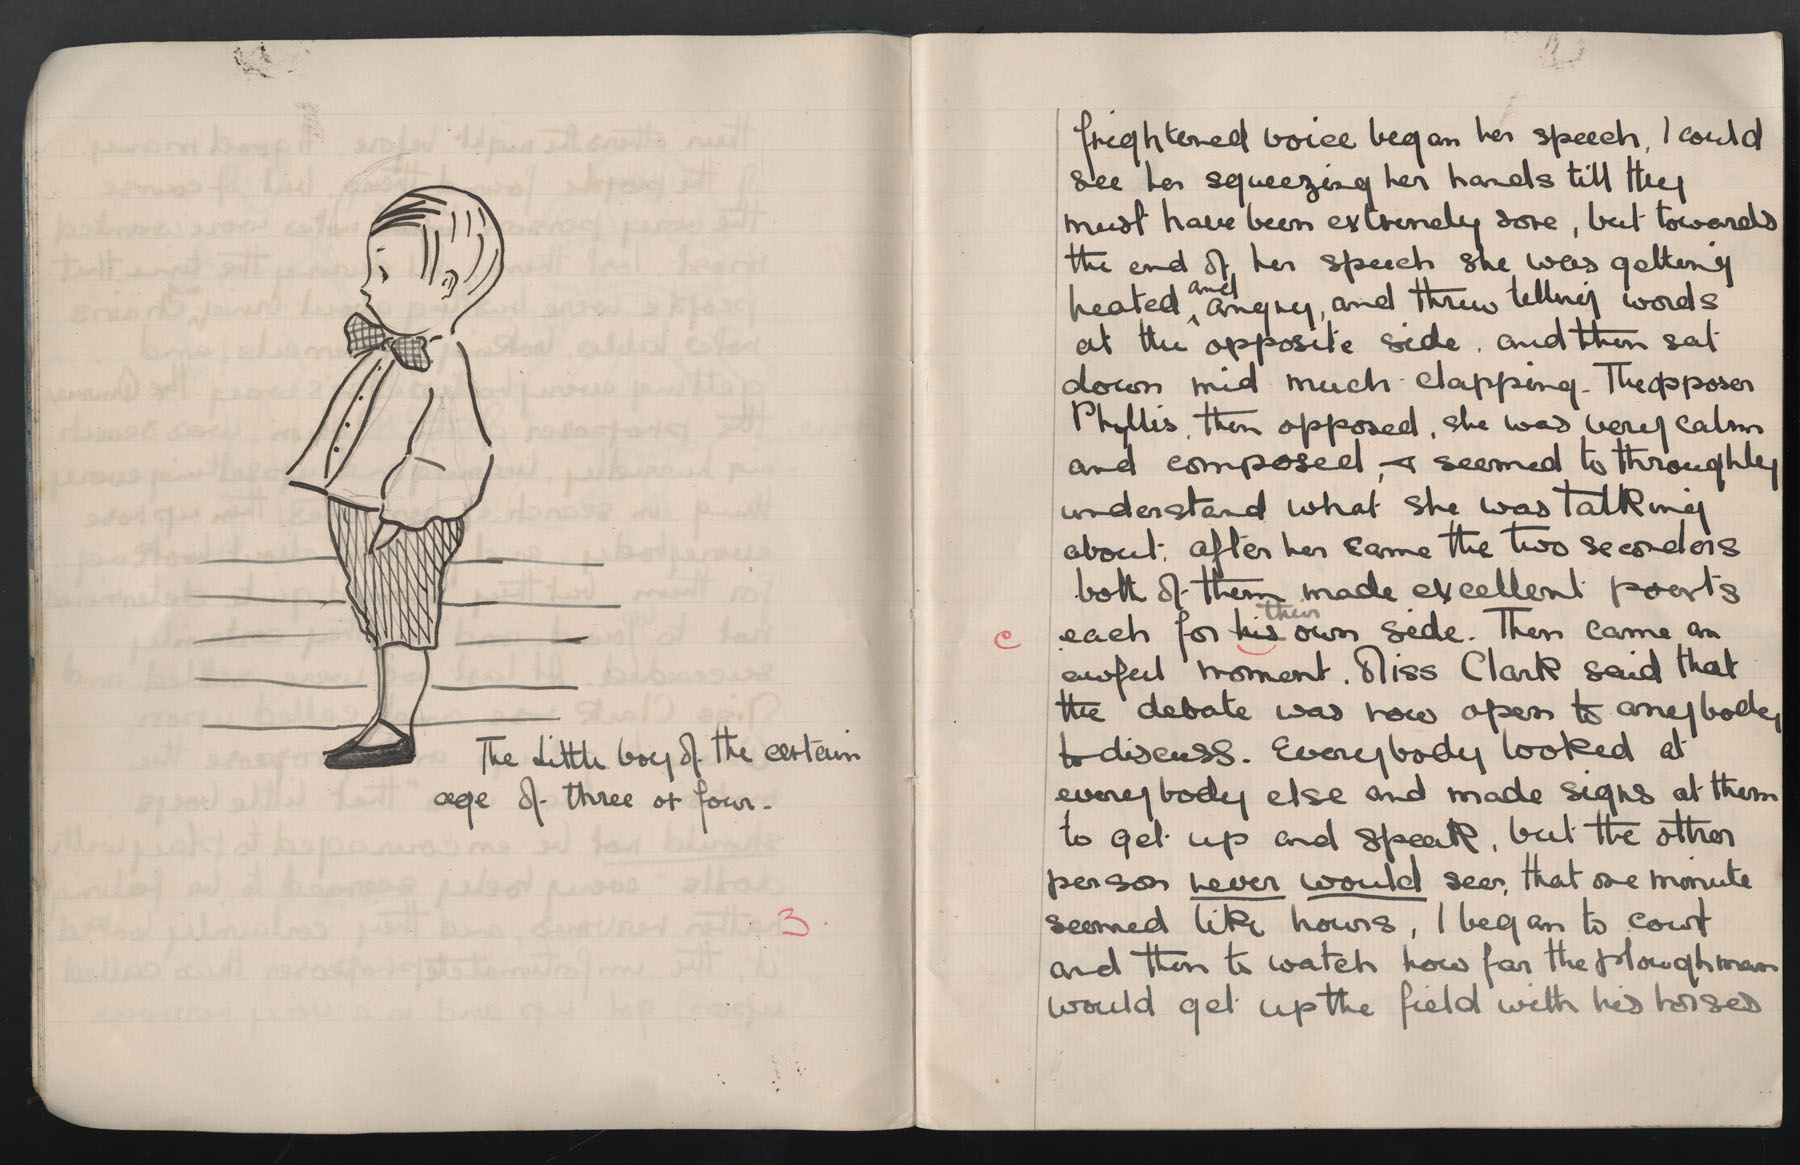 The Little boy of the certain
age of three or four.
3.
frightened voice began her speech, I could
see her squeezing her hands till they
must have been extremely sore, but towards
the end of her speech she was getting
heated and angry, and threw telling words
at the opposite side. and then sat
down mid much clapping. The opposer
Phyllis, then opposed, she was very calm
and composed, & seemed to throughly
understand what she was talking
about. after her came the two seconders
both of them made excellent points
c each for his their own side. Then came an
awful moment. Miss Clark said that
the debate was now open to anybody
to discuss. Everybody looked at
everybody else and made signs at them
to get up and speak, but the other
person never would seer, that one minute
seemed like hours, I began to count
and then to watch how far the ploughman
would get up the field with his horses